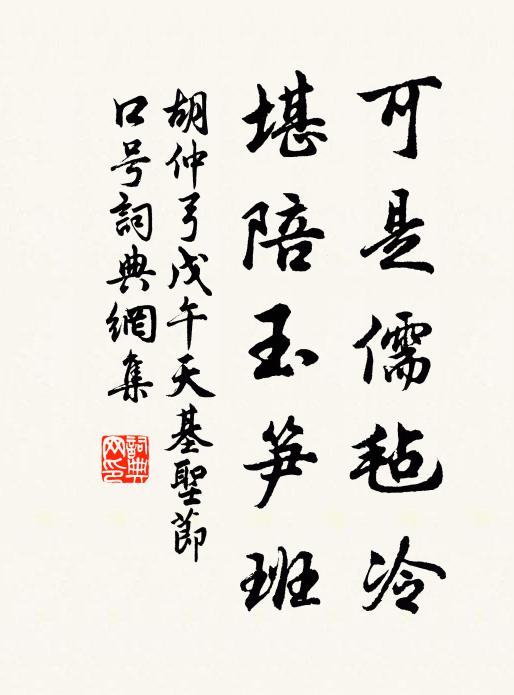 可是儒毡冷
堪陪玉笋班
胡仲弓戊午天基聖節
口号詞典網集
詞典网印